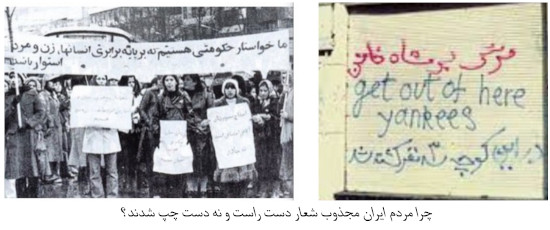 ما خواستار حکومتی هستیم که بر پایه برابری انسانها، زن و مرد
استوار باشد
مرگ بر شاه خائن
get out of here
yankees
در این کوچه سه نفر کشته شد
چرا مردم ایران مجذوب شعار دست راست و نه دست چپ شدند؟